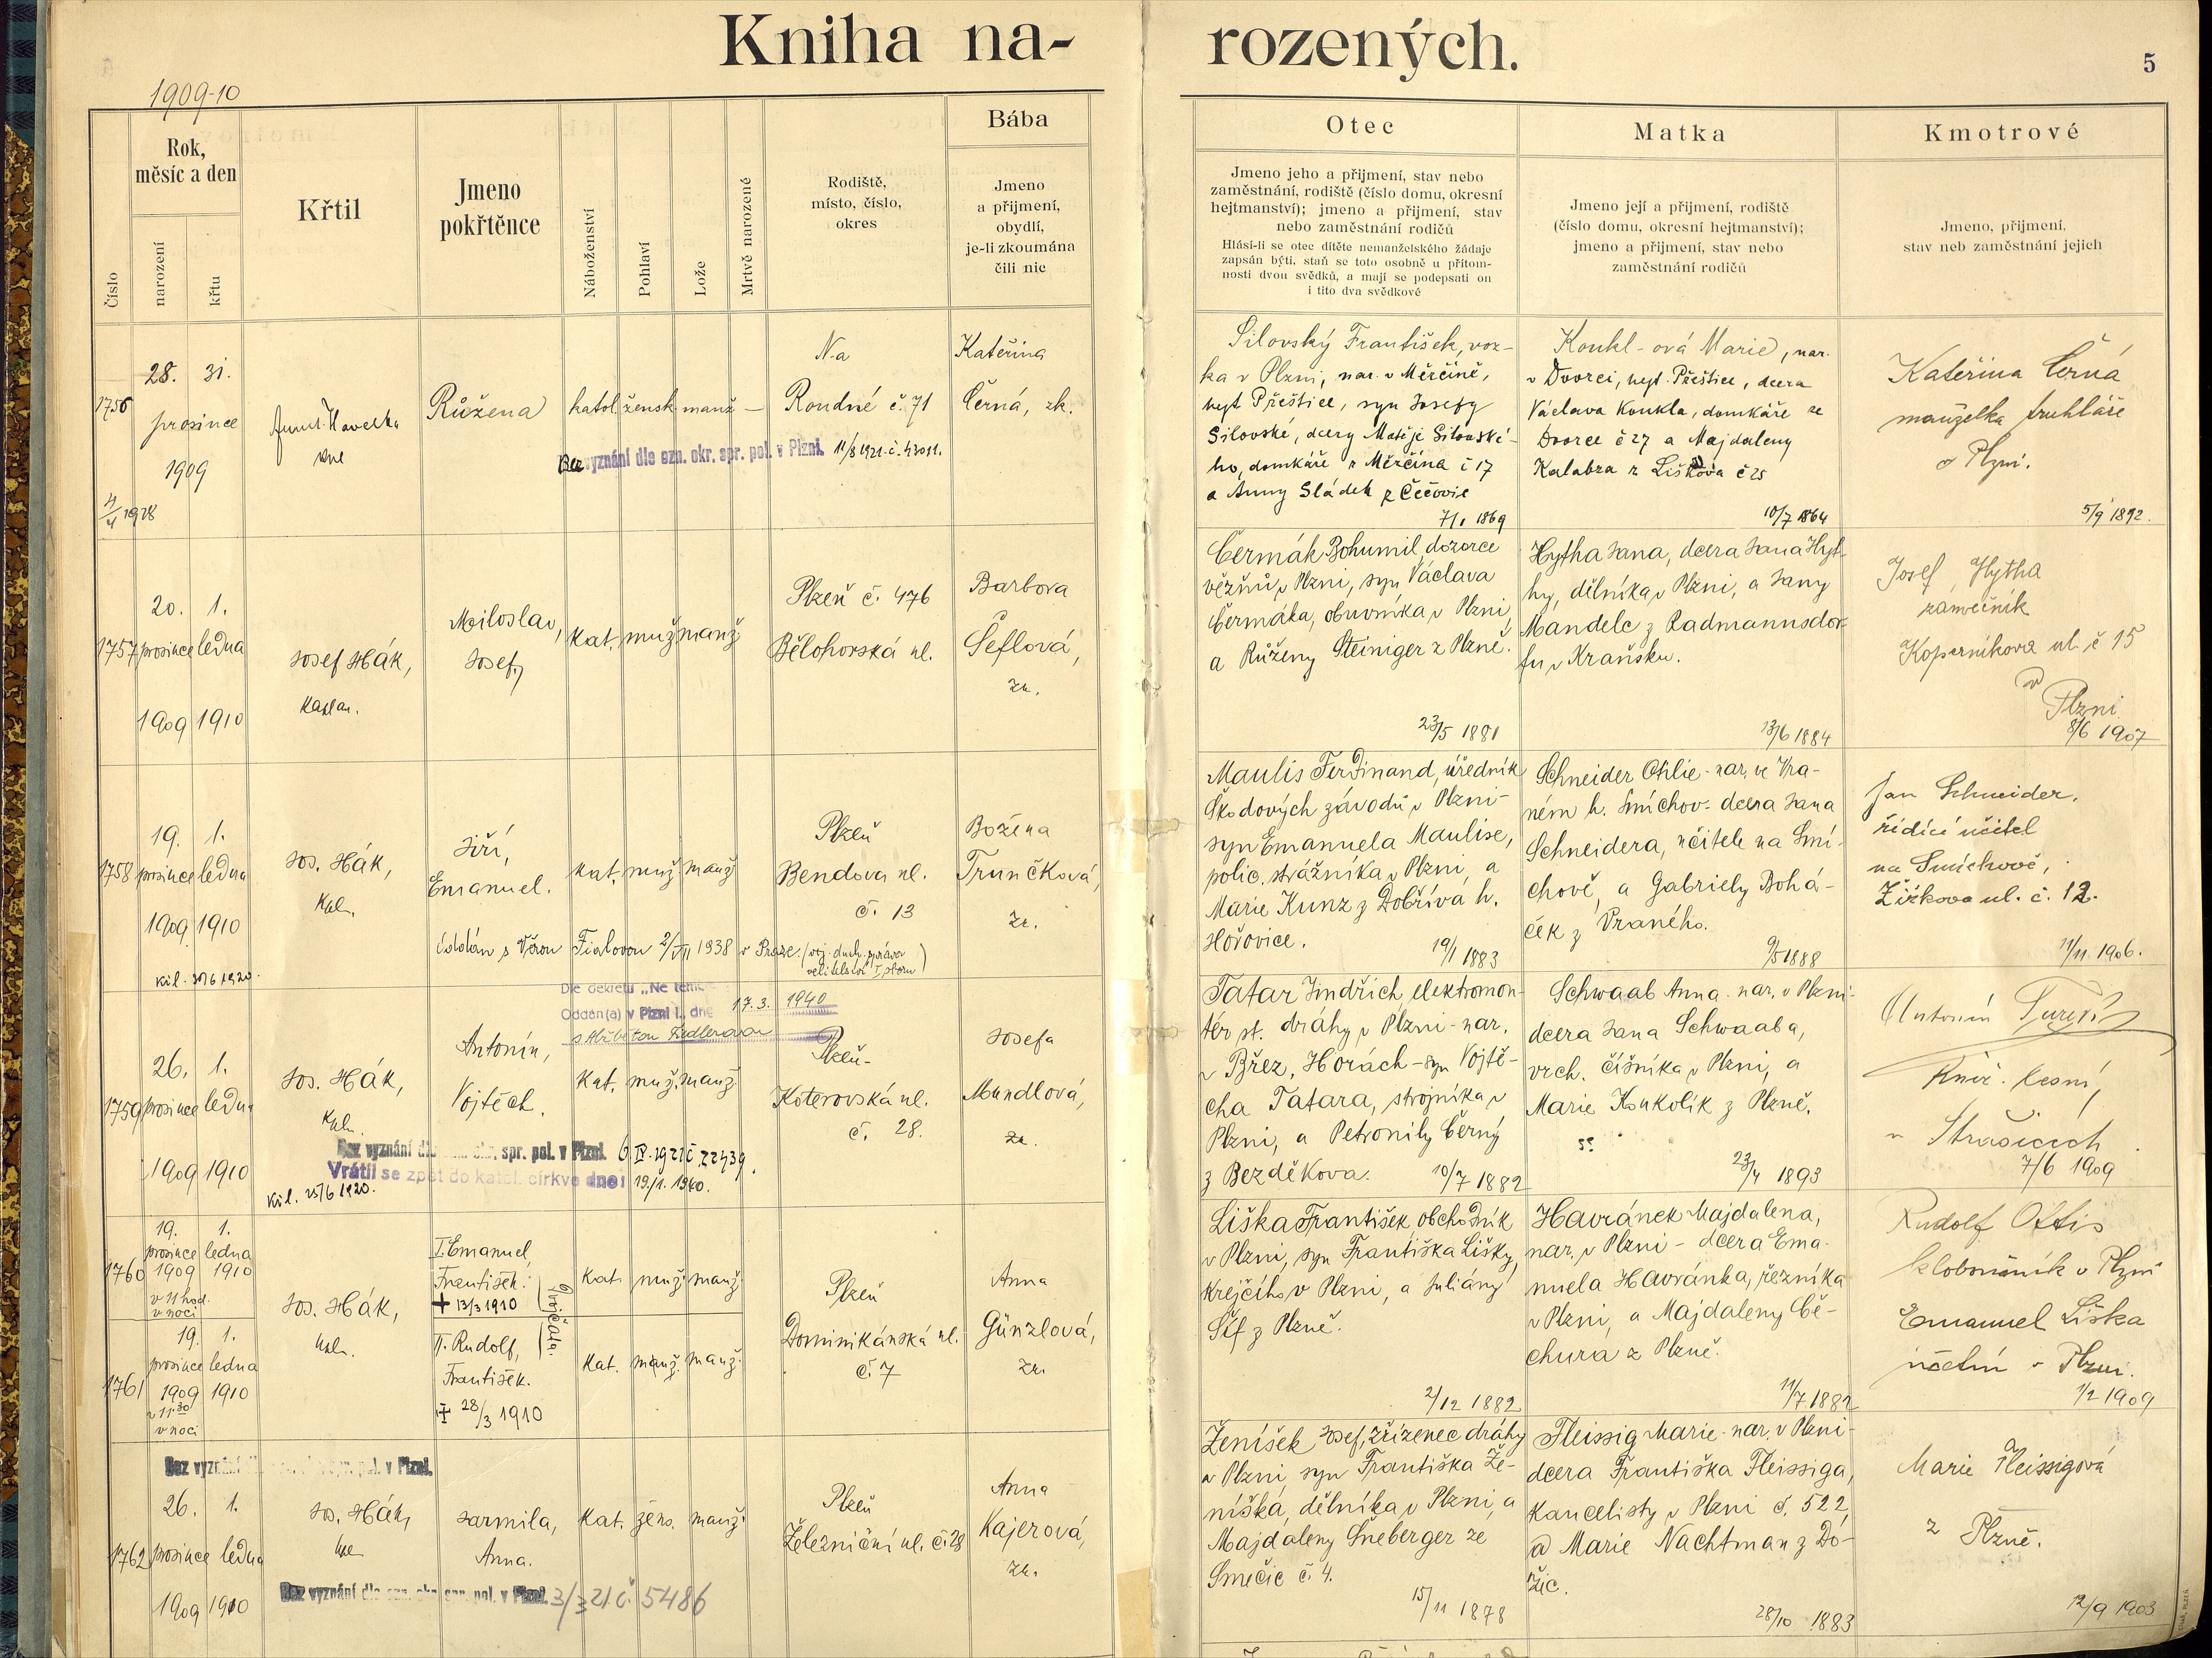 Kniha na-
rozených.
5
1909-10
Číslo
Rok,
měsíc a den
narození
křtu
Křtil
Jmeno
pokřtěnce
Náboženství
Pohlaví
Lože
Mrtvě narozené
Rodiště,
místo, číslo,
okres
Bába
Jmeno
a přijmení,
obydlí,
je-li zkoumána
čili nic
Otec
Jmeno jeho a přijmení, stav nebo
zaměstnání, rodiště (číslo domu, okresní
hejtmanství); jmeno a přijmení, stav
nebo zaměstnání rodičů
Hlásí-li se otec dítěte nemanželského žádaje
zapsán býti, staň se toto osobně u přítom-
nosti dvou svědků, a mají se podepsati on
i tito dva svědkové
Matka
Jmeno její a přijmení, rodiště
(číslo domu, okresní hejtmanství);
jmeno a přijmení, stav nebo
zaměstnání rodičů
Kmotrové
Jmeno, přijmení,
stav neb zaměstnání jejich
1756
28. 31.
prosince
1909
Havelka
Růžena
katol. žensk. manž. —
Bez vyznání dle ozn. okr. spr. pol. v Plzni. 11/8 1921 č. 43011.
Na
Roudné č. 71
Kateřina
Černá, zk.
Silovský František, voz-
ka v Plzni, nar. v Měrčíně,
hejt Přeštice, syn Josefy
Silovské, dcery Matěje Silovské-
ho, domkáře z Měrčína č 17
a Anny Sládek z Čečovic
7/1 1869
Koukl-ová Marie, nar.
v Dvorci, hejt. Přeštice, dcera
Václava Koukla, domkáře ze
Dvorce č 27 a Majdaleny
Kalabza z Liškova č 25
10/7 1864
Kateřina Černá
manželka truhláře
v Plzni.
5/9 1892.
1757
20. 1.
prosince ledna
1909 1910
Josef Hák,
kaplan.
Miloslav,
Josef,
kat. muž. manž.
Plzeň č. 476
Bělohorská ul.
Barbora
Šeflová,
zk.
Čermák Bohumil, dozorce
vězňů v Plzni, syn Václava
Čermáka, obuvníka v Plzni,
a Růženy Steiniger z Plzně.
23/5 1881
Hytha Jana, dcera Jana Hyt-
hy, dělníka v Plzni, a Jany
Mandelc z Radmannsdor-
fu v Kraňsku.
13/6 1884
Josef Hytha
zámečník
Koperníkova ul. č 15
v
Plzni
8/6 1907
1758
19. 1.
prosince ledna
1909 1910
kil. 30/6 1920.
Jos. Hák,
kpln.
Jiří,
Emanuel.
kat. muž. manž.
oddán s Věrou Fialovou 2/VII 1938 v Praze. (voj. duch. správa
velitelství I. sboru)
Plzeň
Bendova ul.
č. 13
Božena
Trunčková,
zk.
Maulis Ferdinand, úředník
Škodových závodů v Plzni-
syn Emanuela Maulise,
polic. strážníka v Plzni, a
Marie Kunz z Dobříva h.
Hořovice.
19/1 1883
Schneider Otilie- nar. ve Vra-
ném h. Smíchov- dcera Jana
Schneidera, učitele na Smí-
chově, a Gabriely Bohá-
ček z Vraného.
9/5 1888
Jan Schneider,
řídící učitel
na Smíchově,
Žižkova ul. č. 12.
11/11. 1906.
1759
26. 1.
prosince ledna
1909 1910
kil. 25/6 1920.
Jos. Hák,
kpln.
Antonín,
Vojtěch.
Dle dekretu „Ne
Oddán(a) v Plzni I., dne 17.3. 1940
kat. muž. manž.
Bez vyznání dle ozn. okr. spr. pol. v Plzni. 6/IV. 1921 č. 22439.
Vrátil se zpět do katol. církve dne: 19/1. 1940.
Plzeň-
Koterovská ul.
č. 28.
Josefa
Mundlová,
zk.
Tatar Jindřich, elektromon-
tér st. dráhy v Plzni- nar.
v Břez. Horách- syn Vojtě-
cha Tatara, strojníka v
Plzni, a Petronily Černý
z Bezděkova.
10/7 1882
Schwaab Anna- nar. v Plzni-
dcera Jana Schwaaba,
vrch. číšníka v Plzni, a
Marie Koukolík z Plzně.
23/4 1893
Antonín
Kníž. lesní,
v Strašicích
7/6 1909
1760
19. 1.
prosince ledna
1909 1910
v 11 hod.
v noci
Jos. Hák,
kpln.
I. Emanuel,
František.
+ 13/3 1910
Dvojčata.
kat. muž. manž.
1761
19. 1.
prosince ledna
1909 1910
v 11 30
v noci
II. Rudolf,
František.
+ 28/3 1910
kat. muž. manž.
Plzeň
Dominikánská ul.
č. 7
Anna
Günzlová,
zk.
Liška František obchodník
v Plzni, syn Františka Lišky,
krejčího v Plzni, a Juliány
Šíf z Plzně.
2/12 1882
Havránek Majdalena,
nar. v Plzni- dcera Ema-
nuela Havránka, řezníka
v Plzni, a Majdaleny Bě-
chura z Plzně.
11/7 1882
Rudolf Ottis
kloboučník v Plzni
Emanuel Liška
účetní v Plzni.
1/2 1909
Bez vyznání
pol. v Plzni.
1762
26. 1.
prosince ledna
1909 1910
Jos. Hák,
kpl.
Jarmila,
Anna.
kat. žens. manž.
Bez vyznání dle ozn. okr. spr. pol. v Plzni. 3/3 21 č. 5486
Plzeň
Železniční ul. č. 28
Anna
Kajerová,
zk.
Ženíšek Josef, zřízenec dráhy
v Plzni, syn Františka Že-
níška, dělníka v Plzni, a
Majdaleny Šneberger ze
Smečic č. 4.
15/11 1878
Fleissig Marie- nar. v Plzni-
dcera Františka Fleissiga,
kancelisty v Plzni č. 522,
a Marie Nachtman z Do-
žic.
28/10 1883
Marie Fleissigová
z Plzně.
12/9 1903